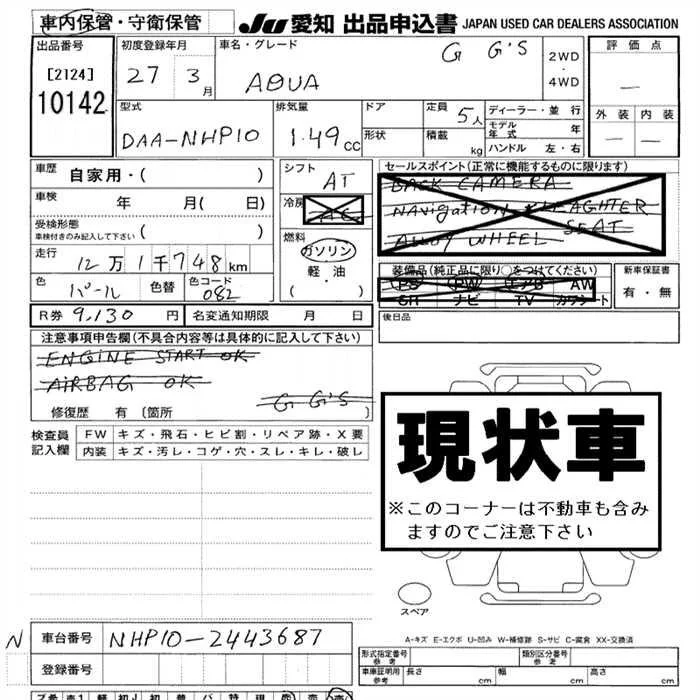 車内保管・守衛保管 JU 愛知 出品申込書 JAPAN USED CAR DEALERS ASSOCIATION
出品番号 初度登録年月 車名・グレード G G'S 2WD ・ 4WD 評価点
[2124] 27 3月 AQUA —
10142 型式 排気量 ドア 定員 5人 ディーラー・並行 外装 内装
DAA-NHP10 1.49cc 形状 積載 kg モデル年式 年 — —
ハンドル 左・右
車歴 自家用・( ) シフト AT セールスポイント(正常に機能するものに限ります)
車検 年 月( 日) 冷房 AC BACK CAMERA
受検形態 NAVIGATION
車検付きのみ記入して下さい ( ) 燃料 ALLOY WHEEL SEAT
走行 12万1千748km ガソリン 装備品(純正品に限り○をつけてください) 新車保証書
色 パール 色替 色コード 082 軽油 PS PW エアB AW 有・無
( ・ ) SR ナビ TV カワシート
R券 9,130 円 名変通知期限 月 日 後日品
注意事項申告欄(不具合内容等は具体的に記入して下さい)
ENGINE START OK
AIRBAG OK
修復歴 有 〔箇所 G G'S
検査員記入欄 FW キズ・飛石・ヒビ割・リペア跡・X要
内装 キズ・汚レ・コゲ・穴・スレ・キレ・破レ
現状車
※このコーナーは不動車も含み
ますのでご注意下さい
スペア
A-キズ E-エクボ U-凹み W-補修跡 S-サビ C-腐食 XX-交換済
N 車台番号 NHP10-2443687
登録番号
形式指定番号 参考 類別区分番号 参考
車庫証明用 参考 長さ cm 幅 cm 高さ cm